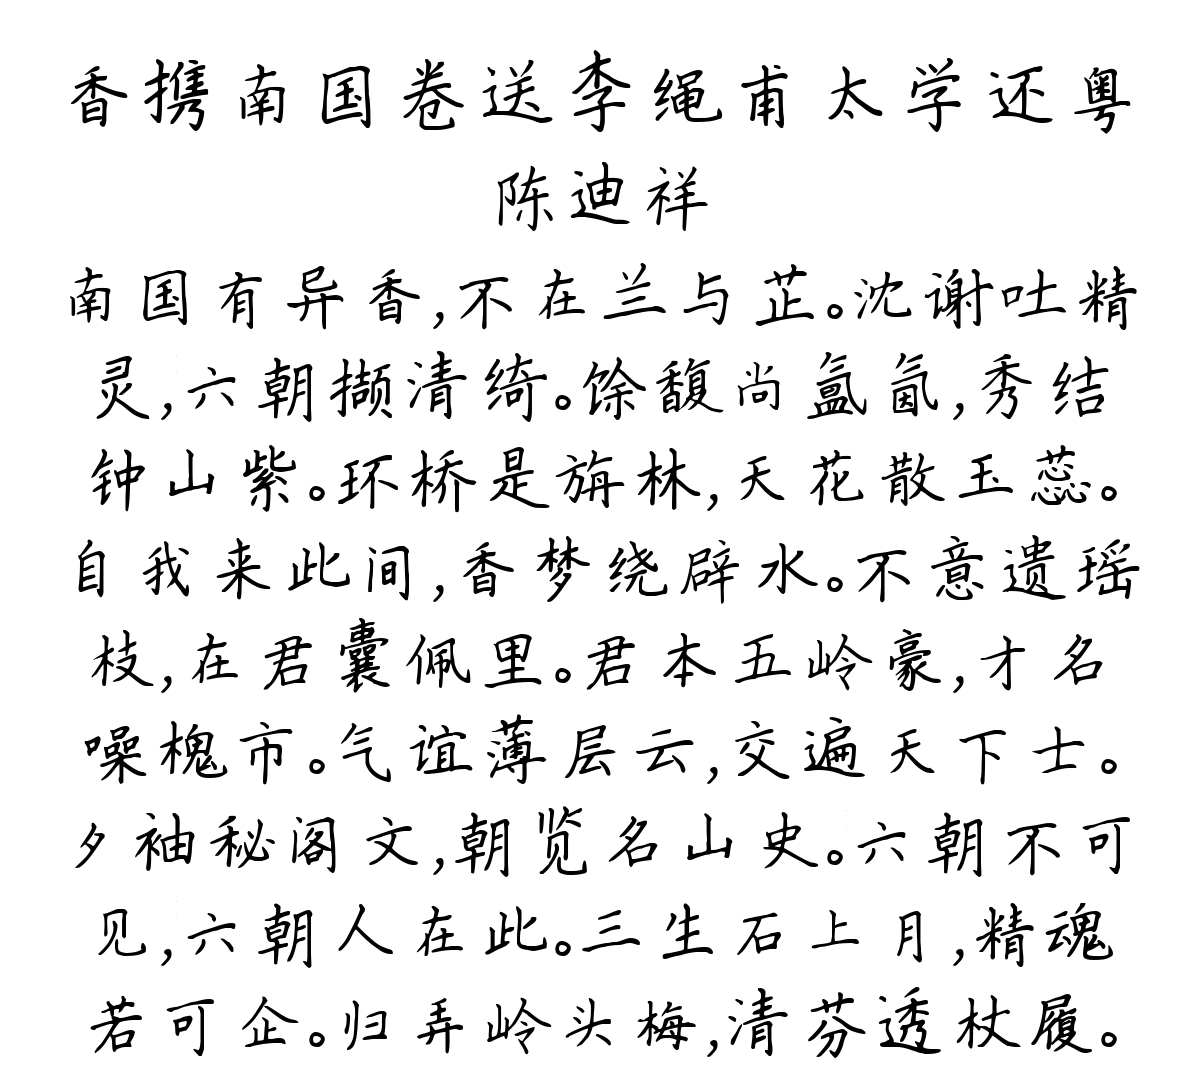 香携南国卷送李绳甫太学还粤
陈迪祥
南国有异香,不在兰与芷。沈谢吐精
灵,六朝撷清绮。馀馥尚氲氤,秀结
钟山紫。环桥是旃林,天花散玉蕊。
自我来此间,香梦绕辟水。不意遗瑶
枝,在君囊佩里。君本五岭豪,才名
噪槐市。气谊薄层云,交遍天下士。
夕袖秘阁文,朝览名山史。六朝不可
见,六朝人在此。三生石上月,精魂
若可企。归弄岭头梅,清芬透杖履。